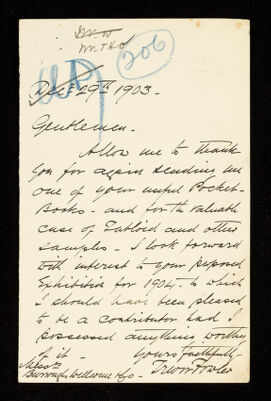 206
HIGHLANDS,
EPPING.
Dec: 29th 1903.
Gentlemen.
Allow me to thank
you for again sending me
one of your useful Pocket-
Books - and for the valuable
case of Tabloid and other
samples - I look forward
with interest to your proposed
Exhibition for 1904. to which
I should have been pleased
to be a contributor had I
possessed anything worthy
of it - Yours faithfully
Messrs
Burroughs Wellcome & Co - Trevor Fowler